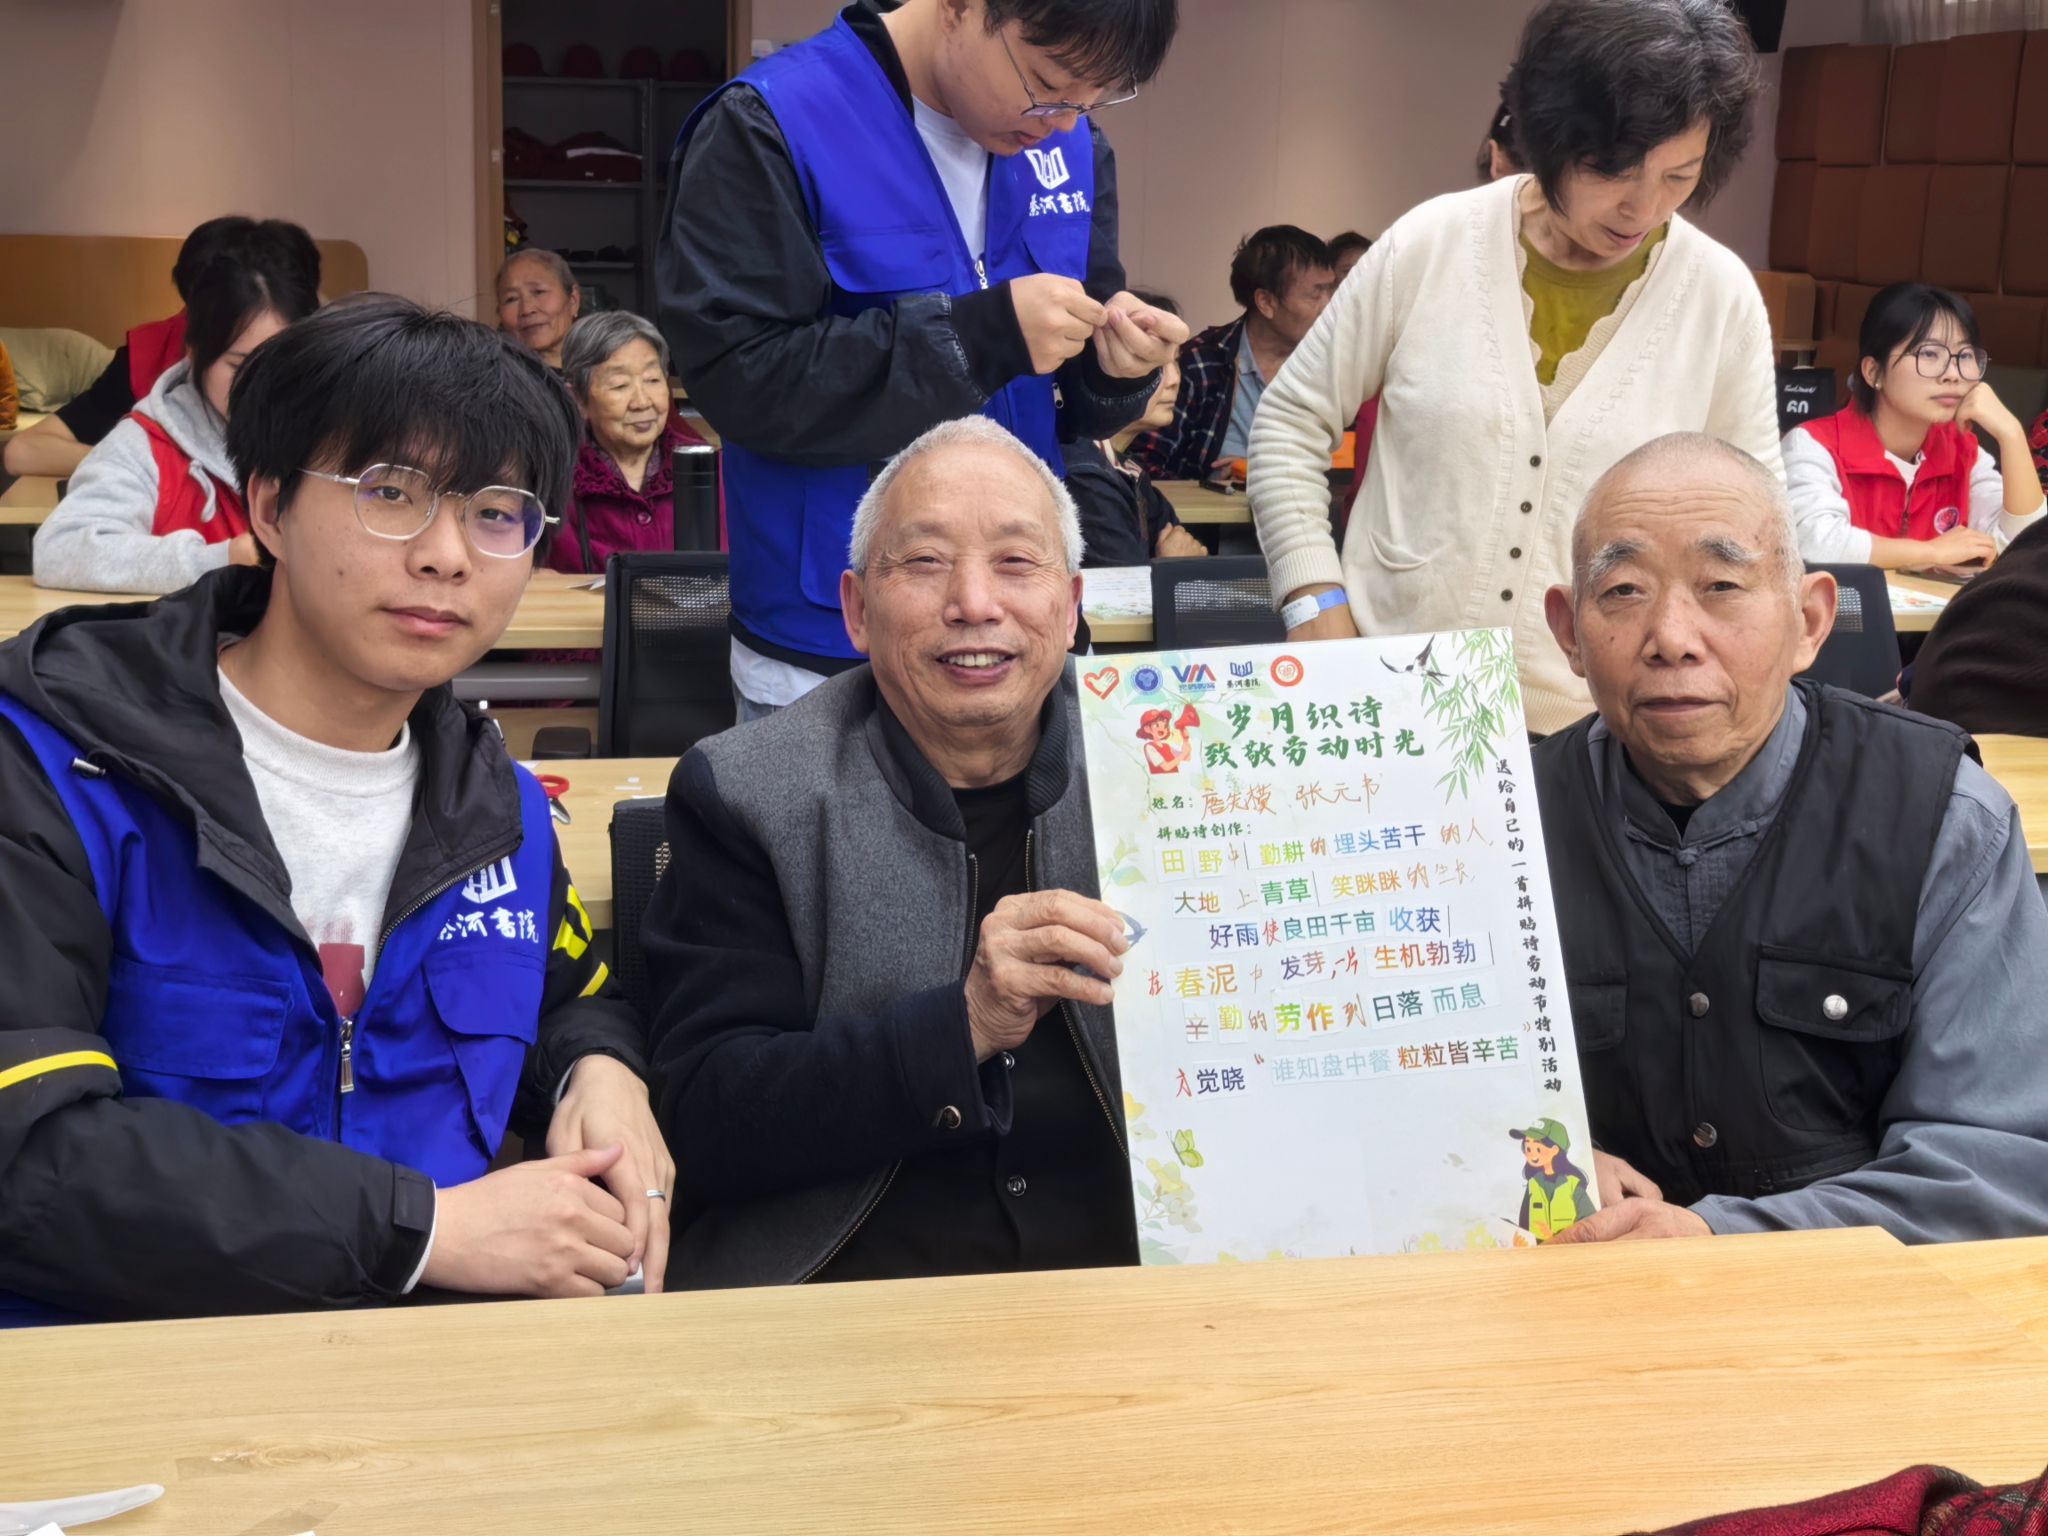 秦河書院
60
VMA
秦河書院
岁月织诗
致敬劳动时光
姓名： 张元书
拼贴诗创作：
田野中 勤耕的 埋头苦干 的人，
大地 上 青草 笑眯眯 的生长，
好雨 使 良田千亩 收获
在 春泥 中 发芽，一片 生机勃勃
辛勤的 劳作 到 日落 而息
才 觉晓 “谁知盘中餐 粒粒皆辛苦”
送给自己的一首拼贴诗劳动节特别活动
河書院